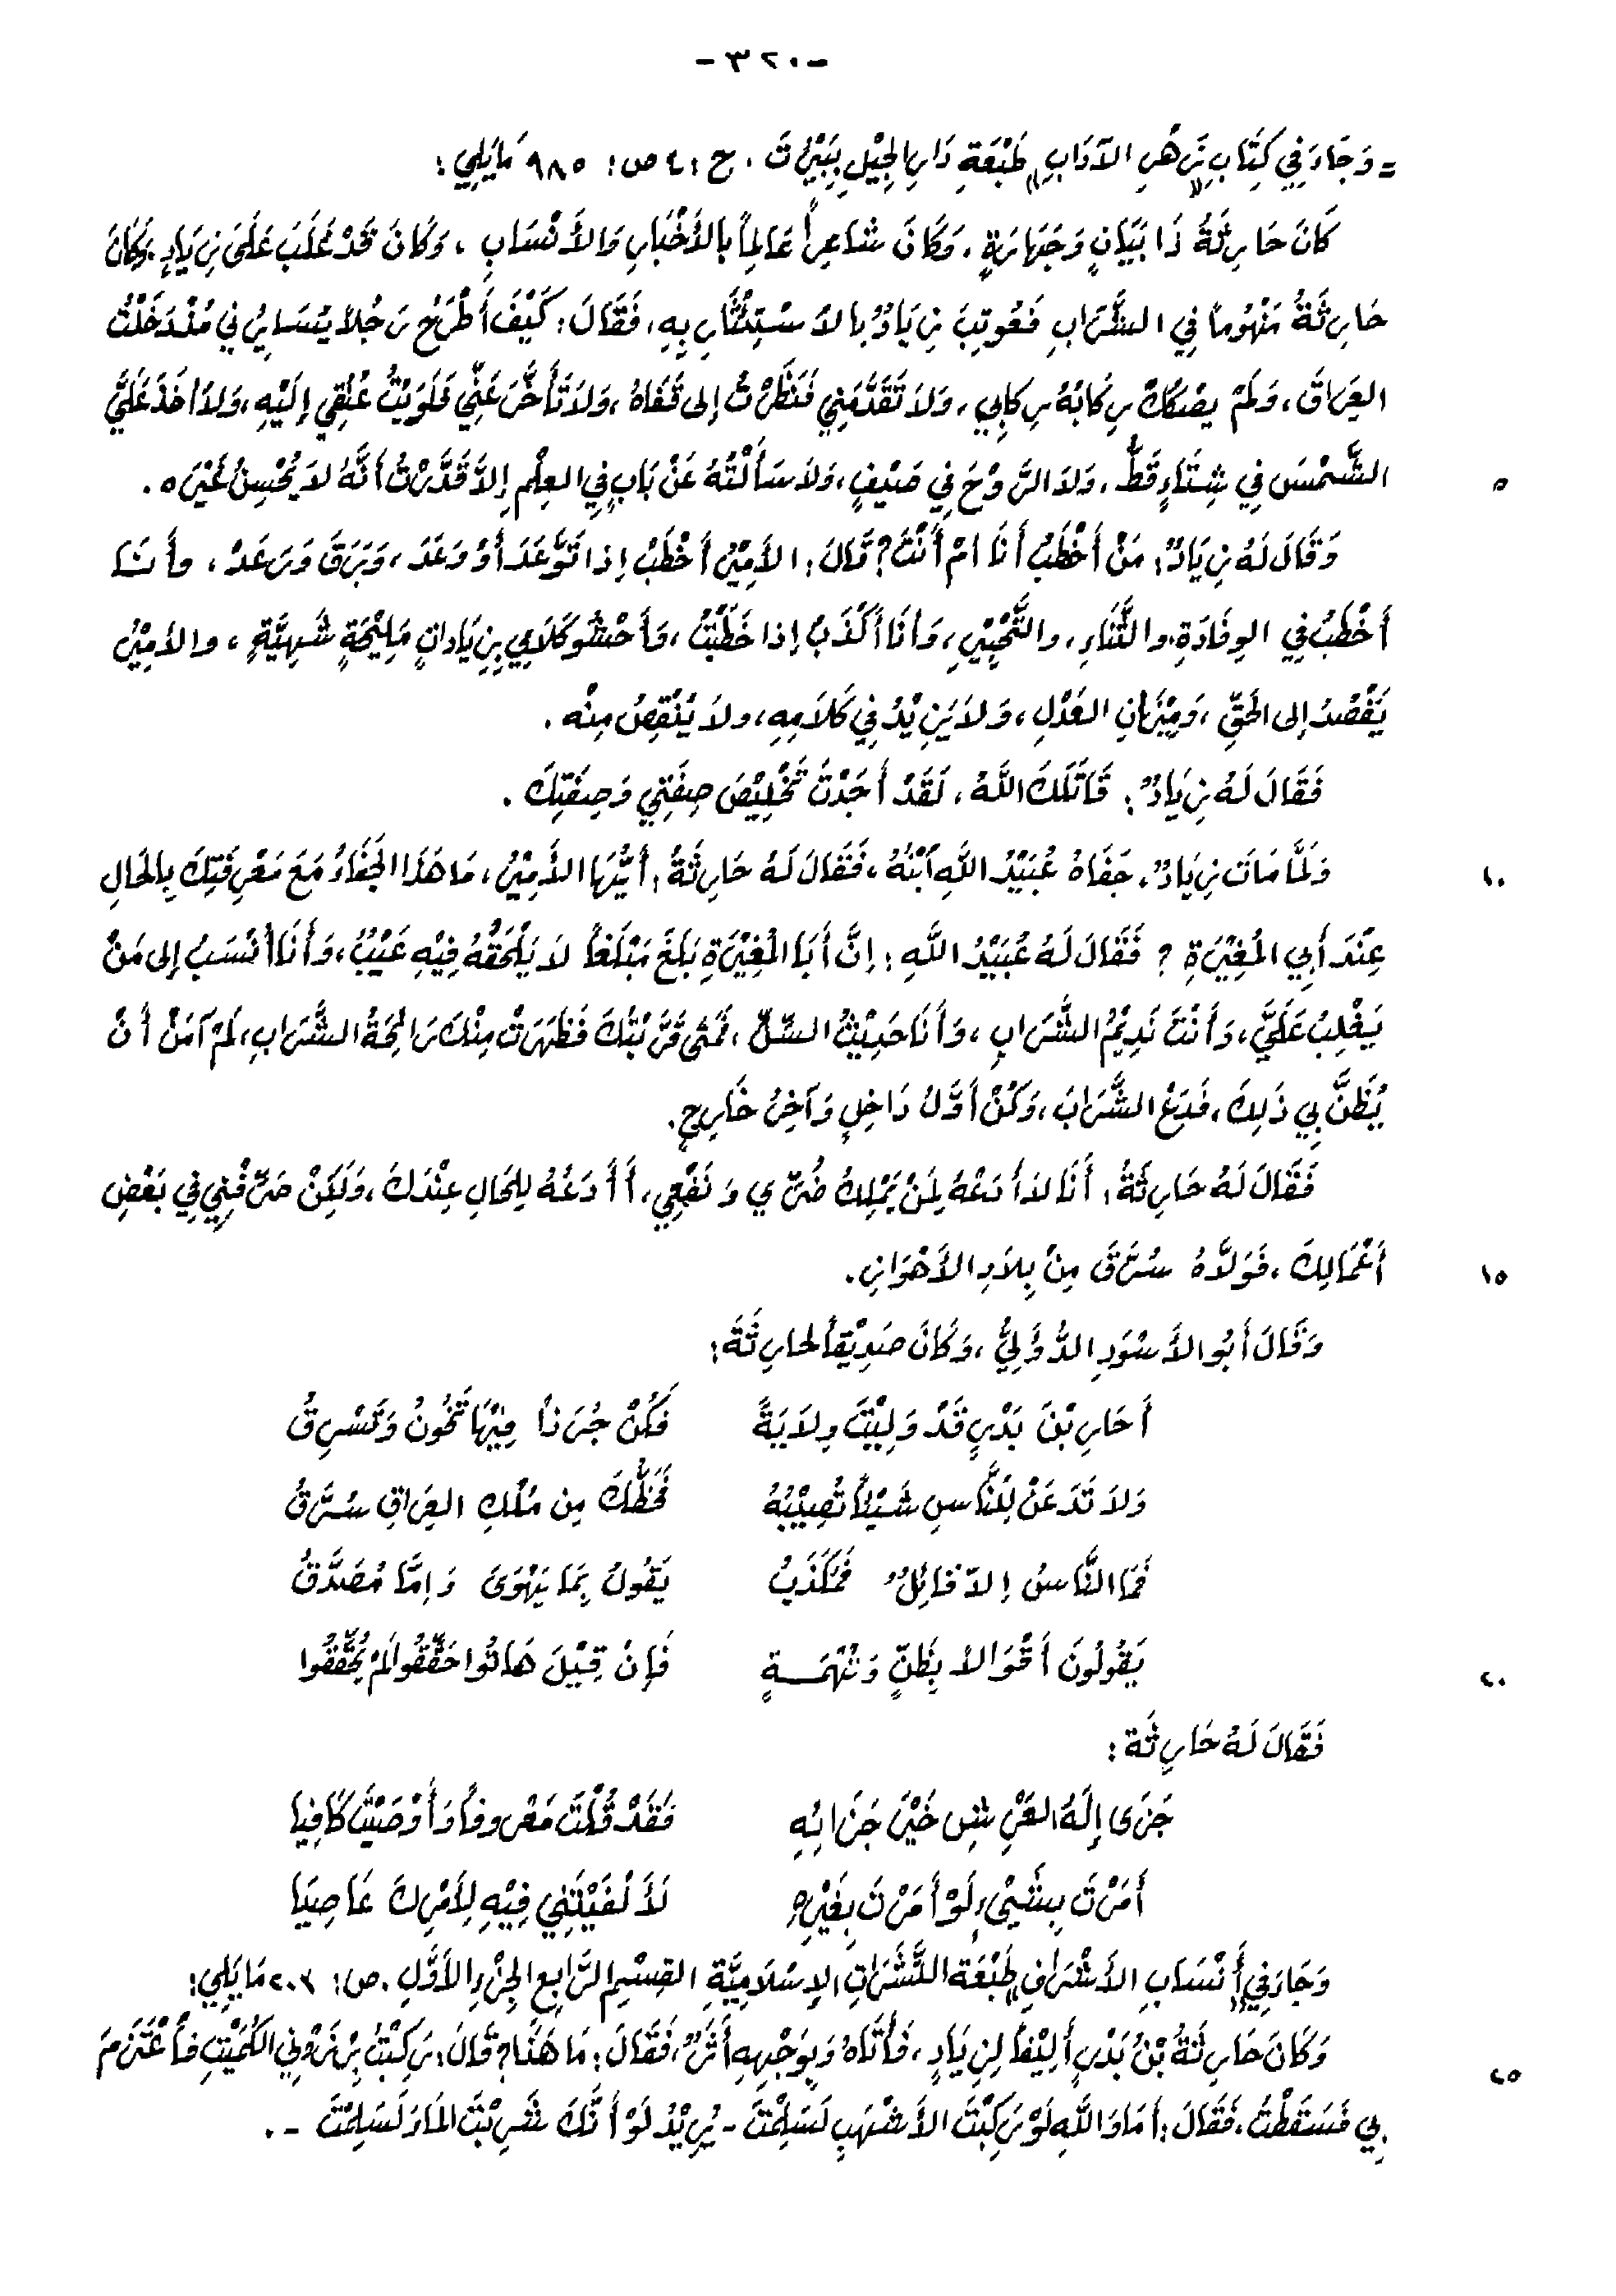 -٣٢٠-
= وَجَاءَ فِي كِتَابِ زَهْرِ الآدَابِ طَبْعَةِ دَارِ الجِيْلِ بِبَيْرُتَ . ج ٤١ ص: ٩٨٥ مَايَلِي:
كَانَ حَارِثَةُ ذَا بَيَانٍ وَجَهَارَةٍ ، وَكَانَ شَاعِراً عَالِماً بالأَخْبَارِ وَالأَنْسَابِ ، وَكَانَ قَدْ غَلَبَ عَلَى زِيَادٍ ،وَكَانَ
حَارِثَةُ مَنْهُوماً فِي الشَّرَابِ فَعُوتِبَ زِيَادٌ بالاسْتِئْثَارِ بِهِ، فَقَالَ: كَيْفَ أَطْرَحُ رَجُلاً يُسَايِرُنِي مُنْذُ دَخَلْتُ
العِرَاقَ، وَلَمْ يَصْكُكْ رِكَابُهُ رِكَابِي، وَلاَ تَقَدَّمَنِي فَنَظَرْتُ إلى قَفَاهُ، وَلاَ تَأَخَّرَ عَنِّي فَلَوَيْتُ عُنُقِي إِلَيْهِ، وَلاَ أَخَذَ عَلَيَّ
الشَّمْسَ فِي شِتَاءٍ قَطُّ، وَلاَ الرَّوْحَ فِي صَيْفٍ، وَلاَ سَأَلْتُهُ عَنْ بَابٍ فِي العِلْمِ إِلاَّ قَدَّرْتُ أَنَّهُ لاَ يُحْسِنُ غَيْرَه . ٥
وَقَالَ لَهُ زِيَادٌ: مَنْ أَخْطَبُ أَنَا امْ أَنْتَ؟ قَالَ: الأَمِيْرُ أَخْطَبُ إذا تَوَّعَدَ أَوْ وَعَدَ ، وَبَرَقَ وَرَعَدَ ، وأَنَا
أَخْطَبُ فِي الوِفَادَةِ، والثَّنَاءِ، والتَّحْبِيْرِ، وَأَنَا أَكْذَبُ إذا خَطَبْتُ ، وَأَحْشُو كَلاَمِي بِزِيَادَاتٍ مَلِيْحَةٍ شَهِيَّةٍ ، والأَمِيْرُ
يَقْصُدُ إلى الحَقِّ ، وَمِيْزَانِ العَدْلِ ، وَلاَ يَزِيْدُ فِي كَلاَمِهِ، ولاَ يُنْقِصُ مِنْه .
فَقَالَ لَهُ زِيَادٌ: قَاتَلَكَ اللَّهُ، لَقَدْ أَجَدْتَ تَخْلِيْصَ صِفَتِي وَصِفَتِكَ .
وَلَمَّا مَاتَ زِيَادٌ، جَفَاهُ عُبَيْدُ اللَّهِ ابْنُهُ، فَقَالَ لَهُ حَارِثَةُ: أَيُّهَا الأَمِيْرُ، مَا هَذَا الجَفَاءُ مَعَ مَعْرِفَتِكَ بِالحَالِ ١٠
عِنْدَ أَبِي المُغِيْرَةِ ؟ فَقَالَ لَهُ عُبَيْدُ اللَّهِ : إِنَّ أَبَا المُغِيْرَةِ بَلَغَ مَبْلَغاً لاَ يَلْحَقُهُ فِيْهِ عَيْبٌ، وَأَنَا أُنْسَبُ إلى مَنْ
يَغْلِبُ عَلَيَّ، وَأَنْتَ نَدِيْمُ الشَّرَابِ، وَأَنَا حَدِيْثُ السِّنِّ ، فَمَتَى قَرَّبْتُكَ فَظَهَرَتْ مِنْكَ رَائِحَةُ الشَّرَابِ، لَمْ آمَنْ أَنْ
يُظَنَّ بِي ذَلِكَ، فَدَعْ الشَّرَابَ، وَكُنْ أَوَّلَ دَاخِلٍ وَآخِرَ خَارِجٍ.
فَقَالَ لَهُ حَارِثَةُ: أَنَا لاَ أَدَعُهُ لِمَنْ يَمْلِكُ ضُرِّي وَ نَفْعِي، أَأَدَعُهُ لِلحَالِ عِنْدَكَ، وَلَكِنْ صَرِّفْنِي فِي بَعْضِ
أَعْمَالِكَ ، فَوَلاَّهُ سُرَّقَ مِنْ بِلاَدِ الأَهْوَازِ. ١٥
وَقَالَ أَبُو الأَسْوَدِ الدُّؤَلِيُّ ، وَكَانَ صَدِيْقاً لحارِثَةَ:
أَحَارِ بْنَ بَدْرٍ قَدْ وَلِيْتَ وِلاَيَةً فَكُنْ جُرَذاً فِيْهَا تَخُونُ وَتَسْرِقُ
وَلاَ تَدَعَنْ لِلنَّاسِ شَيْئاً تُصِيْبُهُ فَحَظُّكَ مِن مُلْكِ العِرَاقِ سُرَّقُ
فَمَا النَّاسُ إلاّ قَائِلٌ فَمُكَذَبُ يَقُولُ بِمَا يَهْوَى وَإمَّا مُصَدَّقُ
يَقُولُونَ أَقْوَالاً بِظَنٍّ وَتُهْمَةٍ فَإِنْ قِيْلَ هَاتُوا حَقِّقُوا لَمْ يُحَقِّقُوا ٢٠
فَقَالَ لَهُ حَارِثَة:
جَزَى إِلَهُ العَرْشِ خَيْرَ جَزَائِهِ فَقَدْ قُلْتَ مَعْرُوفاً وَأَوْصَيْتَ كَافِيا
أَمَرْتَ بِشَيْءٍ لَوْ أَمَرْتَ بِغَيْرِهِ لأَلْفَيْتَنِي فِيْهِ لِأَمْرِكَ عَاصِيَا
وَجَاءَ فِي أَنْسَابِ الأَشْرَافِ طَبْعَة النَّشَرَاتِ الإِسْلاَمِيَّةِ القِسْمِ الرَّابِعِ الجُزْءِ الأَوَّلِ . ص: ٢٠٣ مَا يَلِي:
وَكَانَ حَارِثَةُ بْنُ بَدْرٍ أَلِيْفاً لِزِيَادٍ ، فَأَتَاهُ وَبِوَجْهِهِ أَثَرٌ، فَقَالَ: مَا هَذَا؟ قَالَ: رَكِبْتُ بِرْذَوْنِي الكُمَيْتِ فَاعْتَزَمَ ٢٥
بِي فَسَقَطْتُ، فَقَالَ: أَمَا وَاللَّهِ لَوْ رَكِبْتَ الأَشْهَبِ لَسَلِمْتَ - يُرِيْدُ لَوْ أَنَّكَ شَرِبْتَ المَاءَ لَسَلِمْتَ - .